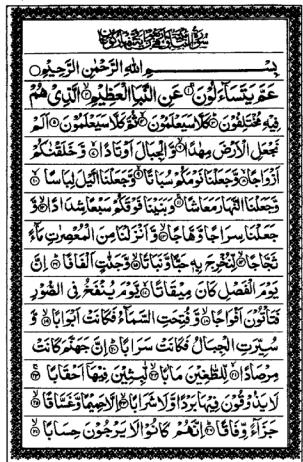 بِسْمِ اللهِ الرَّحْمٰنِ الرَّحِيْمِ
عَمَّ يَتَسَآءَلُوْنَ ۝۱ عَنِ النَّبَاِ الْعَظِيْمِ ۝۲ الَّذِيْ هُمْ
فِيْهِ مُخْتَلِفُوْنَ ۝۳ كَلَّا سَيَعْلَمُوْنَ ۝۴ ثُمَّ كَلَّا سَيَعْلَمُوْنَ ۝۵ اَلَمْ
نَجْعَلِ الْاَرْضَ مِهٰدًا ۝۶ وَّالْجِبَالَ اَوْتَادًا ۝۷ وَّخَلَقْنٰكُمْ
اَزْوَاجًا ۝۸ وَّجَعَلْنَا نَوْمَكُمْ سُبَاتًا ۝۹ وَّجَعَلْنَا الَّيْلَ لِبَاسًا ۝۱۰
وَّجَعَلْنَا النَّهَارَ مَعَاشًا ۝۱۱ وَّبَنَيْنَا فَوْقَكُمْ سَبْعًا شِدَادًا ۝۱۲ وَّ
جَعَلْنَا سِرَاجًا وَّهَّاجًا ۝۱۳ وَّاَنْزَلْنَا مِنَ الْمُعْصِرٰتِ مَآءً
ثَجَّاجًا ۝۱۴ لِّنُخْرِجَ بِهٖ حَبًّا وَّنَبَاتًا ۝۱۵ وَّجَنّٰتٍ اَلْفَافًا ۝۱۶ اِنَّ
يَوْمَ الْفَصْلِ كَانَ مِيْقَاتًا ۝۱۷ يَّوْمَ يُنْفَخُ فِي الصُّوْرِ
فَتَاْتُوْنَ اَفْوَاجًا ۝۱۸ وَّفُتِحَتِ السَّمَآءُ فَكَانَتْ اَبْوَابًا ۝۱۹ وَّ
سُيِّرَتِ الْجِبَالُ فَكَانَتْ سَرَابًا ۝۲۰ اِنَّ جَهَنَّمَ كَانَتْ
مِرْصَادًا ۝۲۱ لِّلطّٰغِيْنَ مَاٰبًا ۝۲۲ لّٰبِثِيْنَ فِيْهَآ اَحْقَابًا ۝۲۳
لَا يَذُوْقُوْنَ فِيْهَا بَرْدًا وَّلَا شَرَابًا ۝۲۴ اِلَّا حَمِيْمًا وَّغَسَّاقًا ۝۲۵
جَزَآءً وِّفَاقًا ۝۲۶ اِنَّهُمْ كَانُوْا لَا يَرْجُوْنَ حِسَابًا ۝۲۷